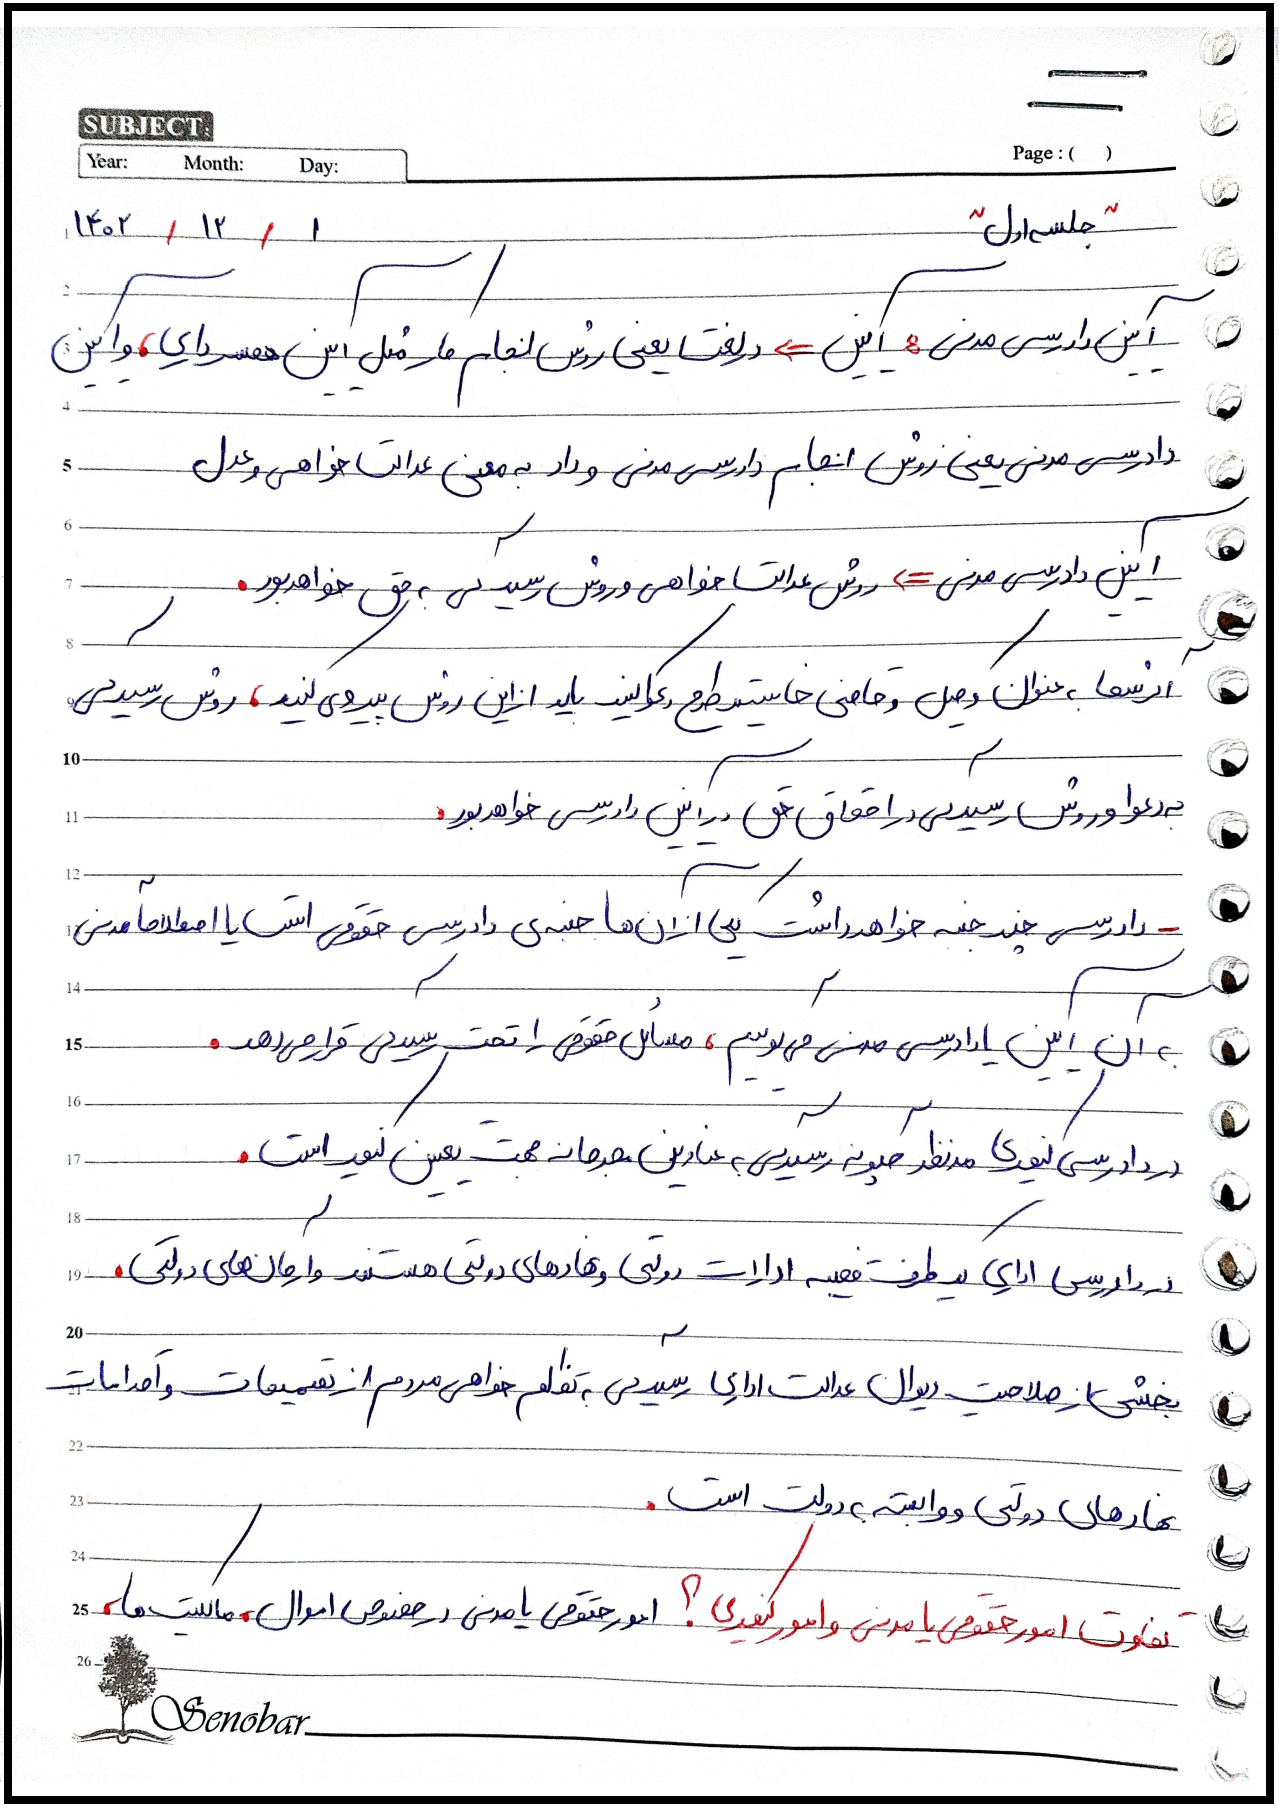 SUBJECT:
Year: Month: Day: Page : ( )
"جلسه اول" ۱ / ۱۲ / ۱۴۰۲
آیین دادرسی مدنی: آیین ⇐ در لغت یعنی روش انجام کار مثل آیین همسرداری، و آیین
دادرسی مدنی یعنی روش انجام دادرسی مدنی و داد به معنی عدالت خواهی و عدل
آیین دادرسی مدنی ⇐ روش عدالت خواهی و روش رسیدگی به حق خواهد بود.
اگر شما به عنوان وکیل و قاضی خواستید طرح دعوا کنید باید از این روش پیروی کنید، روش رسیدگی
به دعوا و روش رسیدگی در احقاق حق در آیین دادرسی خواهد بود.
- دادرسی چند جنبه خواهد داشت یکی از آن ها جنبه ی دادرسی حقوقی است یا اصطلاحاً مدنی
به آن آیین دادرسی مدنی می گوییم، مسائل حقوقی را تحت رسیدگی قرار می دهد.
در دادرسی کیفری مدنظر چگونه رسیدگی به عناوین مجرمانه جهت تعیین کیفر است.
در دادرسی اداری یک طرف قضیه ادارات دولتی و نهادهای دولتی هستند و ارگان های دولتی.
بخشی از صلاحیت دیوان عدالت اداری رسیدگی به تظلم خواهی مردم از تصمیمات و اقدامات
نهادهای دولتی و وابسته به دولت است.
تفاوت امور حقوقی یا مدنی و امور کیفری؟ امور حقوقی یا مدنی در خصوص اموال، مالکیت ها،
Senobar